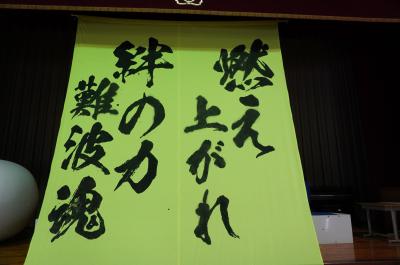 燃え
上がれ
絆の力
難波魂